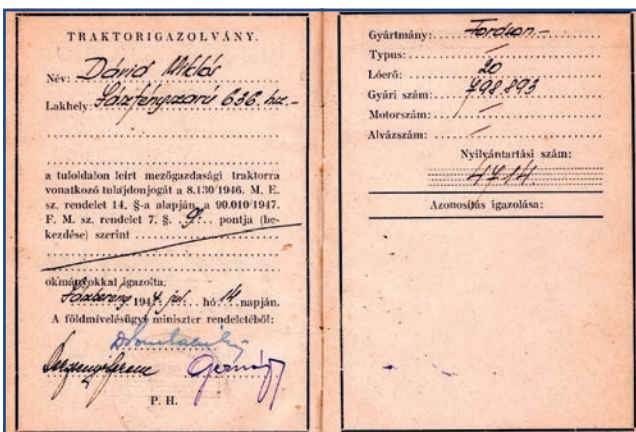 TRAKTORIGAZOLVÁNY.
Név: Dávid Miklós
Lakhely: Jászfényszaru 636. hsz.-
a tuloldalon leírt mezőgazdasági traktorra
vonatkozó tulajdonjogát a 8.130/1946. M. E.
sz. rendelet 14. §-a alapján, a 90.010/1947.
F. M. sz. rendelet 7. §. g. pontja (be-
kezdése) szerint
okmányokkal igazolta.
Jászberény 1947 júl. hó 14 napján.
A földmívelésügyi miniszter rendeletéből:
P. H.
Gyártmány: Fordson.-
Typus: /
Lóerő: 20
Gyári szám: 798.893
Motorszám: /
Alvázszám: /
Nyilvántartási szám:
4714.
Azonosítás igazolása: